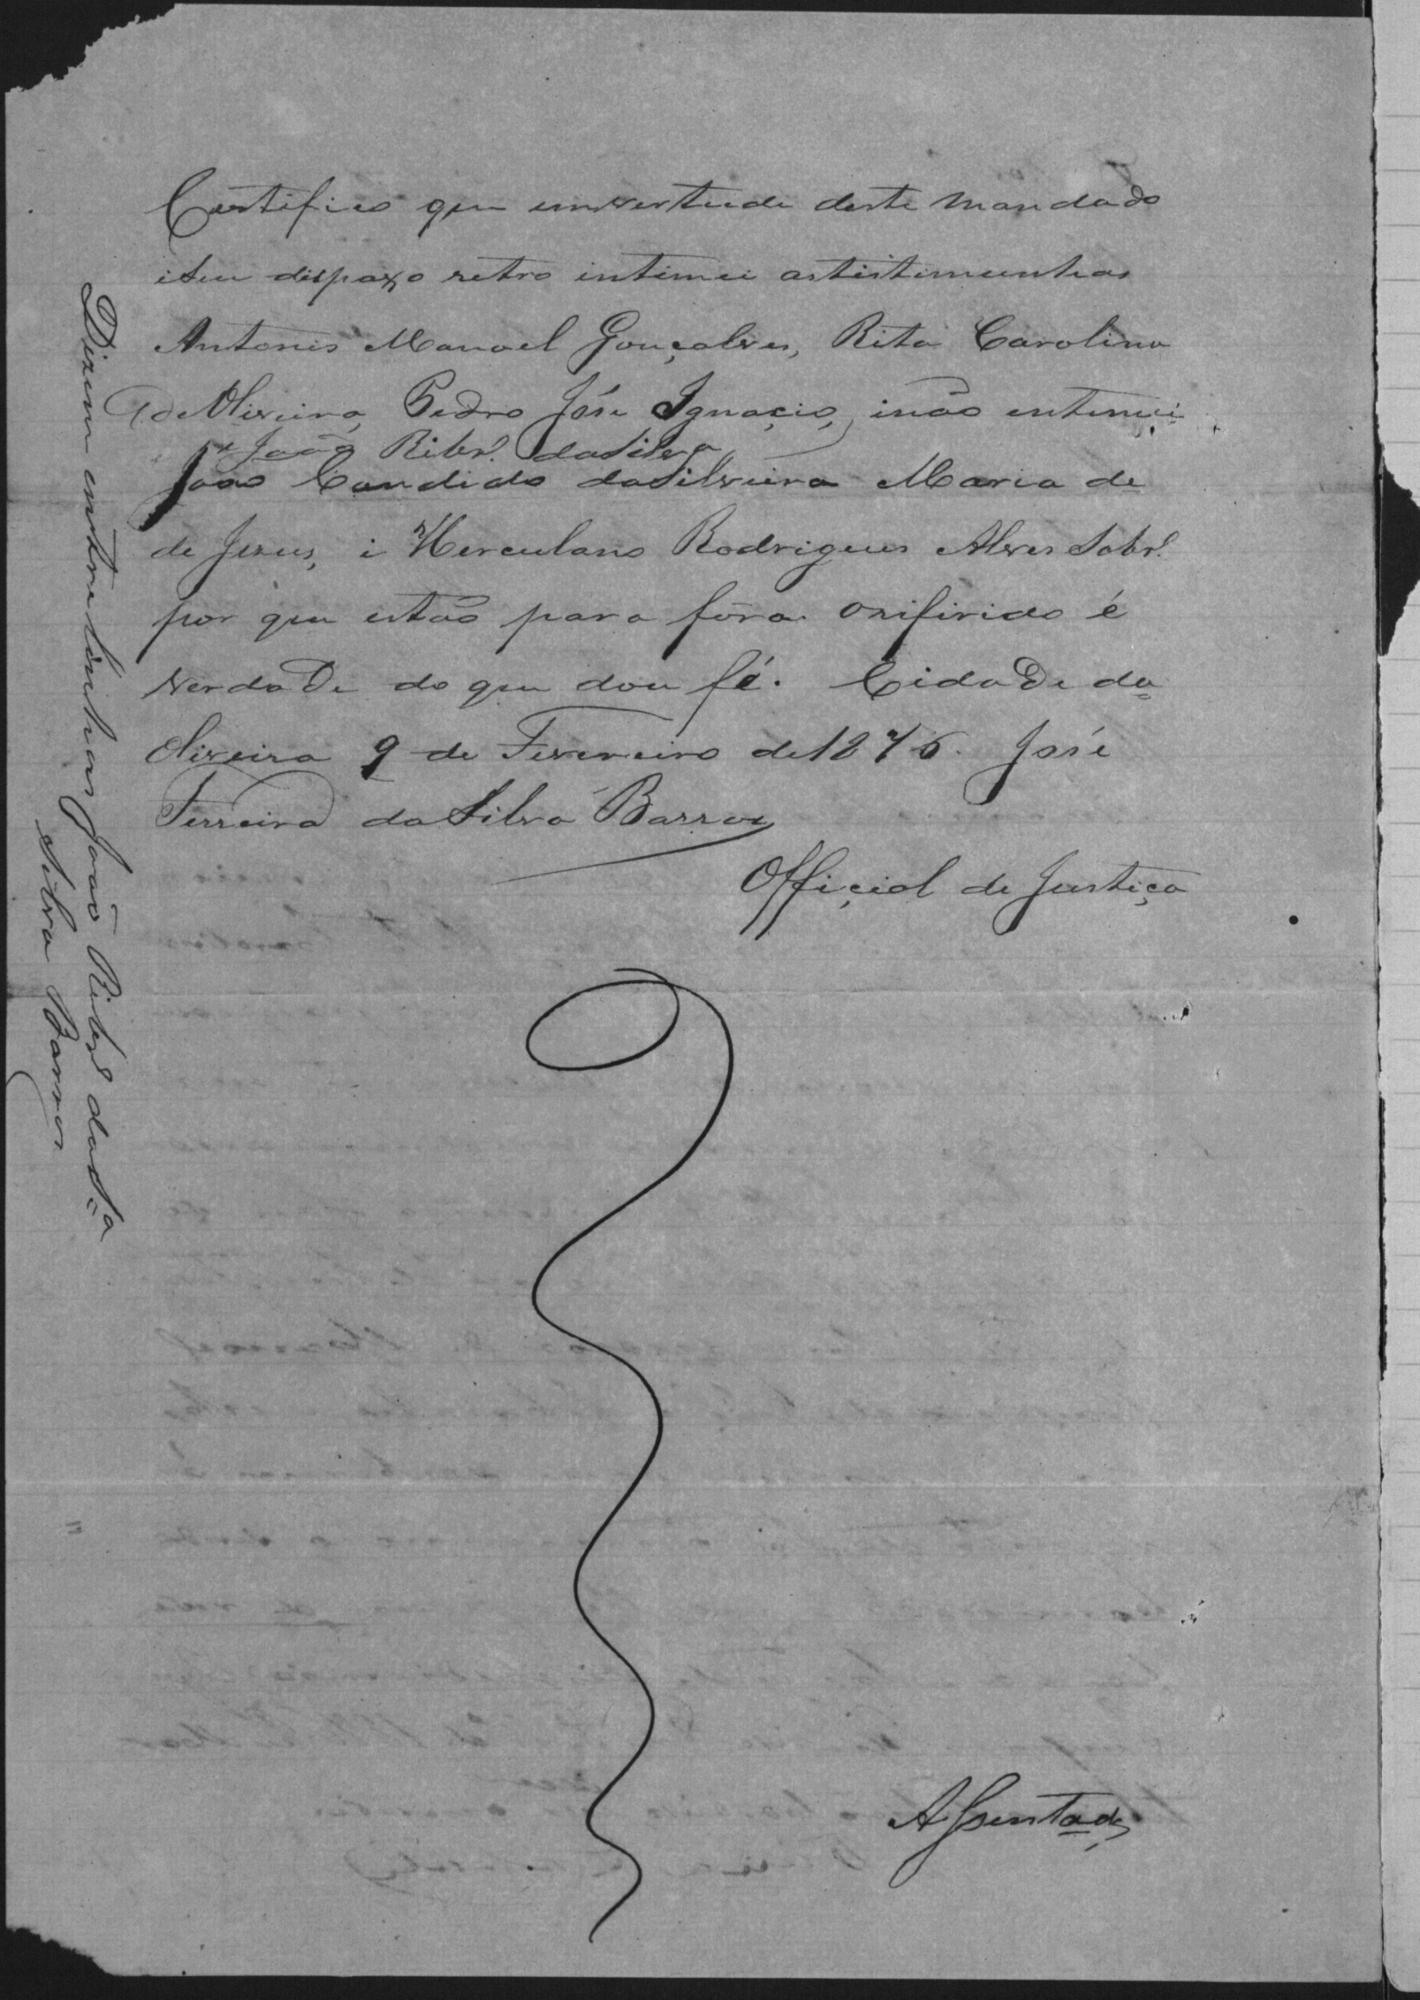 Certifico que emvertude deste mandado
iseu dispaxo retro intimei astistimunhas
Antonio Manoel Gonçalves, Rita Carolina
de Oliveira, Pedro José Ignacio, inão entimei
João Ribr.º dasilva
João Candido dasilveira Maria de
de Jezus, i Herculano Rodrigues Alves Sobr.º
por que estão para fóra. orifirido é
verdade do que dou fé. Cidade da
Oliveira 9 de Fevereiro de 1876. José
Ferreira da Silva Barros
Offiçial de Justiça
Dizem entre linhas João Ribrº da S.ª
Silva Barros
Assentada